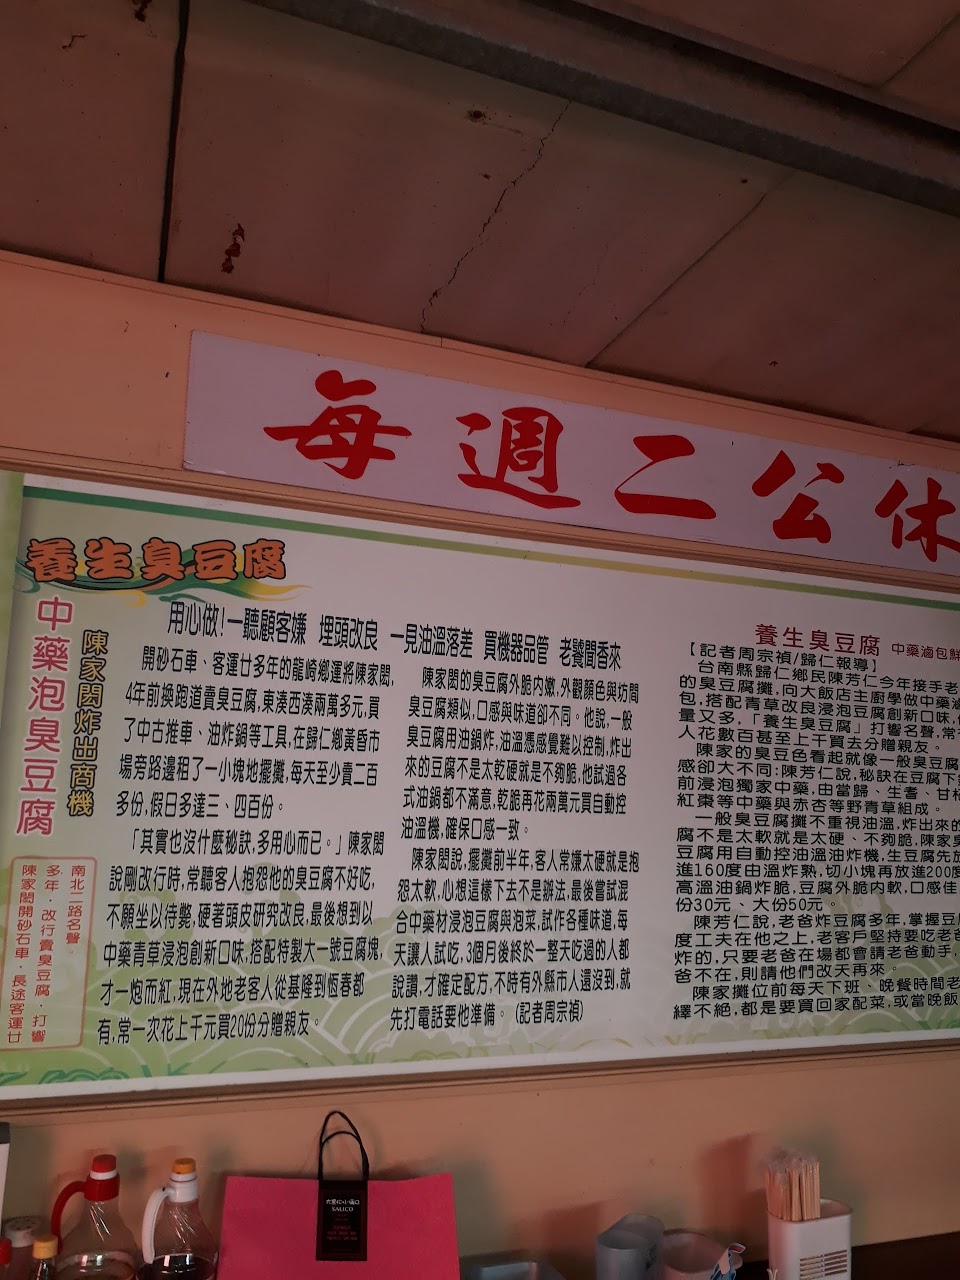 每週二公休
養生臭豆腐
中藥泡臭豆腐
陳家閎炸出商機
陳家閎開砂石車．長途客運廿
多年．改行賣臭豆腐．打響
南北二路名聲。
用心做!一聽顧客嫌 埋頭改良 一見油溫落差 買機器品管 老饕聞香來
開砂石車、客運廿多年的龍崎鄉運將陳家閎,
4年前換跑道賣臭豆腐,東湊西湊兩萬多元,買
了中古推車、油炸鍋等工具,在歸仁鄉黃昏市
場旁路邊租了一小塊地擺攤,每天至少賣二百
多份,假日多達三、四百份。
「其實也沒什麼秘訣,多用心而已。」陳家閎
說剛改行時,常聽客人抱怨他的臭豆腐不好吃,
不願坐以待斃,硬著頭皮研究改良,最後想到以
中藥青草浸泡創新口味,搭配特製大一號豆腐塊,
才一炮而紅,現在外地老客人從基隆到恆春都
有,常一次花上千元買20份分贈親友。
陳家閎的臭豆腐外脆內嫩,外觀顏色與坊間
臭豆腐類似,口感與味道卻不同。他說,一般
臭豆腐用油鍋炸,油溫憑感覺難以控制,炸出
來的豆腐不是太乾硬就是不夠脆,他試過各
式油鍋都不滿意,乾脆再花兩萬元買自動控
油溫機,確保口感一致。
陳家閎說,擺攤前半年,客人常嫌太硬就是抱
怨太軟,心想這樣下去不是辦法,最後嘗試混
合中藥材浸泡豆腐與泡菜,試作各種味道,每
天讓人試吃,3個月後終於一整天吃過的人都
說讚,才確定配方,不時有外縣市人還沒到,就
先打電話要他準備。(記者周宗禎)
養生臭豆腐 中藥滷包鮮
【記者周宗禎/歸仁報導】
台南縣歸仁鄉民陳芳仁今年接手老
的臭豆腐攤,向大飯店主廚學做中藥滷
包,搭配青草改良浸泡豆腐創新口味,
量又多,「養生臭豆腐」打響名聲,常
人花數百甚至上千買去分贈親友。
陳家的臭豆色看起就像一般臭豆腐
感卻大不同:陳芳仁說,秘訣在豆腐下
前浸泡獨家中藥,由當歸、生耆、甘
紅棗等中藥與赤杏等野青草組成。
一般臭豆腐攤不重視油溫,炸出來的
腐不是太軟就是太硬、不夠脆,陳家臭
豆腐用自動控油溫油炸機,生豆腐先放
進160度由溫炸熟,切小塊再放進200度
高溫油鍋炸脆,豆腐外脆內軟,口感佳
份30元、大份50元。
陳芳仁說,老爸炸豆腐多年,掌握豆
度工夫在他之上,老客戶堅持要吃老爸
炸的,只要老爸在場都會請老爸動手,
爸不在,則請他們改天再來。
陳家攤位前每天下班、晚餐時間老
繹不絕,都是要買回家配菜,或當晚飯
SALICO